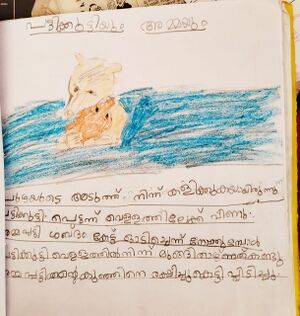 പട്ടിക്കുട്ടിയും അമ്മയും
പുഴയുടെ അടുത്ത് നിന്ന് കളിക്കുകയായിരുന്നു
പട്ടിക്കുട്ടി പെട്ടന്ന് വെള്ളത്തിലേക്ക് വീണു.
അമ്മപട്ടി ശബ്ദം കേട്ട് ഓടിച്ചെന്ന് നോക്കുമ്പോൾ
പട്ടിക്കുട്ടി വെള്ളത്തിൽനിന്ന് മുങ്ങിതാഴുന്നത്കണ്ടു
അമ്മപട്ടിതന്റെകുഞ്ഞിനെ രക്ഷിച്ചുകെട്ടി പ്പിടിച്ചു